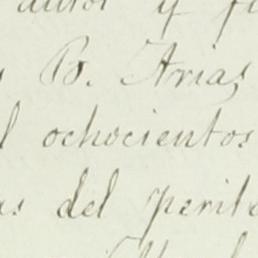 autos y
B. Arias
ochocientos
del perit